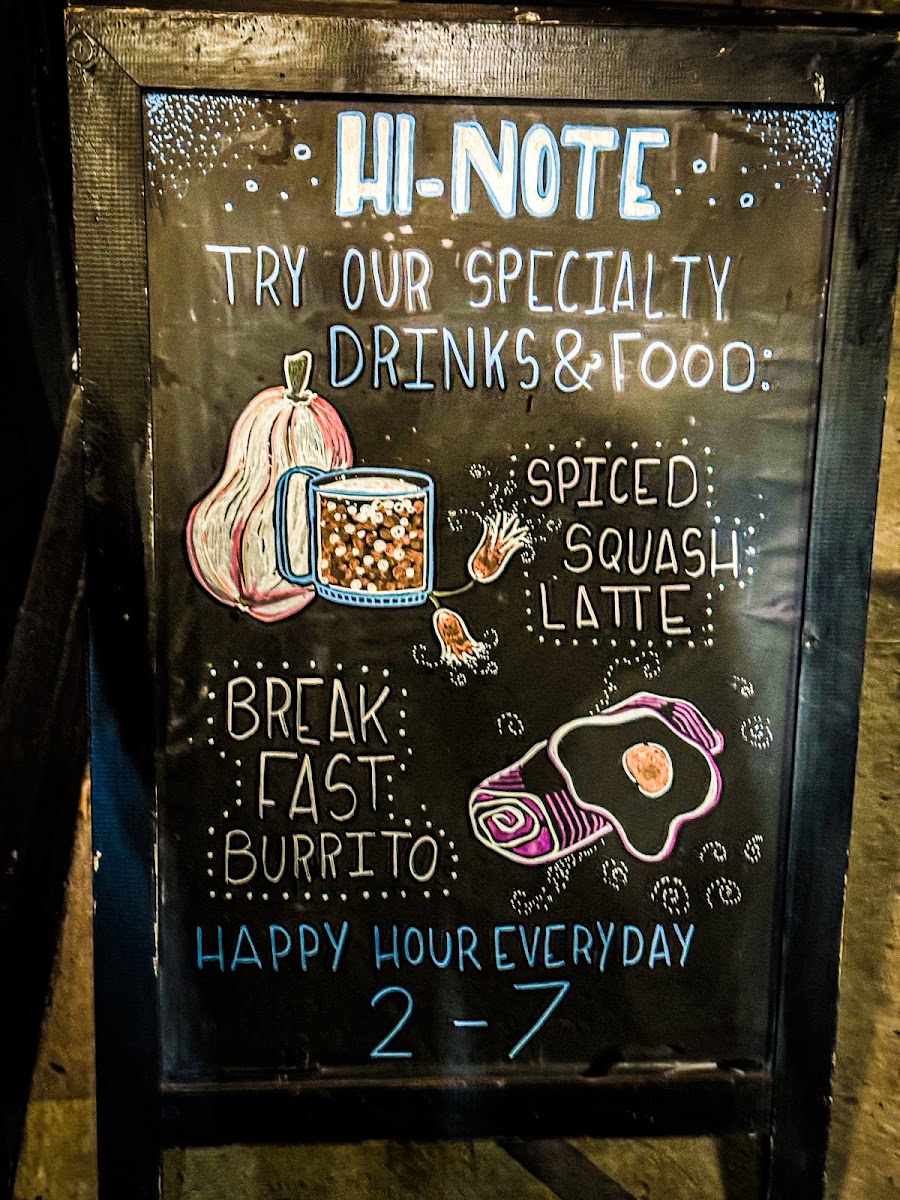 HI-NOTE
TRY OUR SPECIALTY
DRINKS & FOOD:
SPICED
SQUASH
LATTE
BREAK
FAST
BURRITO
HAPPY HOUR EVERYDAY
2 - 7